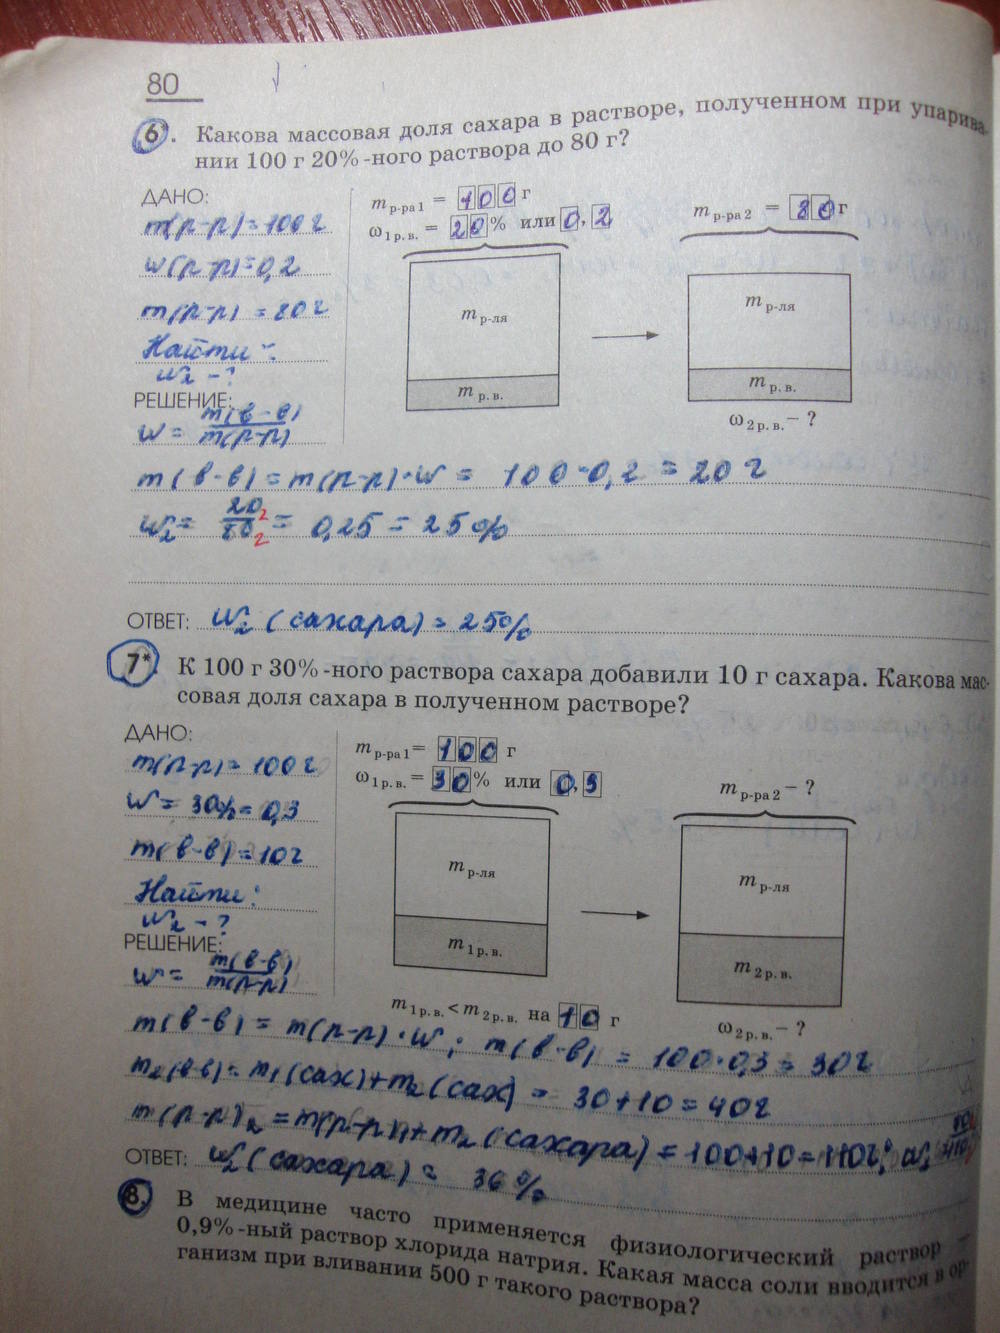 80
6*. Какова массовая доля сахара в растворе, полученном при упарива-
нии 100 г 20%-ного раствора до 80 г?
ДАНО:
m(р-р)=100г
w(р-р)=0,2
m(р-р) = 80г
Найти:
w₂ - ?
m р-ра 1 = 100 г
ω 1 р.в. = 20 % или 0,2
m р-ля
m р.в.
m р-ра 2 = 80 г
m р-ля
m р.в.
ω 2 р.в. – ?
РЕШЕНИЕ:
w = m(в-в)/m(р-р)
m(в-в) = m(р-р)·w = 100·0,2 = 20 г
w₂ = 20г/80г = 0,25 = 25%
ОТВЕТ: w₂ (сахара) = 25%
7* К 100 г 30%-ного раствора сахара добавили 10 г сахара. Какова мас-
совая доля сахара в полученном растворе?
ДАНО:
m(р-р)= 100г
w = 30% = 0,3
m(в-в)=10г
Найти:
w₂ - ?
m р-ра 1 = 100 г
ω 1 р.в. = 30 % или 0,3
m р-ля
m 1 р.в.
m р-ра 2 – ?
m р-ля
m 2 р.в.
m 1 р.в. < m 2 р.в. на 10 г
ω 2 р.в. – ?
РЕШЕНИЕ:
w = m(в-в)/m(р-р)
m(в-в) = m(р-р)·w; m(в-в) = 100·0,3 = 30г
m₂(в-в)= m₁(сах)+m₂(сах) = 30+10=40г
m(р-р)₂ = m(р-р)₁+m₂(сахара) = 100+10=110г;
ОТВЕТ: w₂ (сахара) = 36%
8. В медицине часто применяется физиологический раствор –
0,9%-ный раствор хлорида натрия. Какая масса соли вводится в ор-
ганизм при вливании 500 г такого раствора?